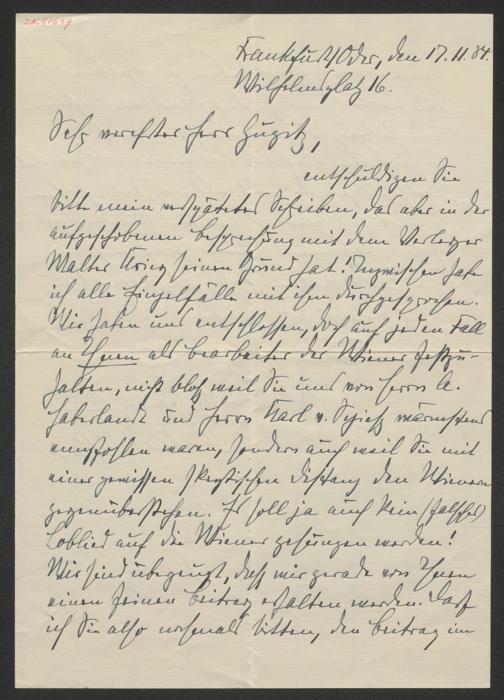 Frankfurt/Oder, den 17.11.34.
Wilhelmsplatz 16.
Sehr verehrter Herr Gugitz,
entschuldigen Sie
bitte mein verspätetes Schreiben, das aber in der
aufgeschobenen Besprechung mit dem Verleger
Walter Krieg seinen Grund hat! Inzwischen habe
ich alle Einzelfälle mit ihm durchgesprochen.
Wir haben uns entschlossen, doch auf jeden Fall
an Ihnen als Bearbeiter der Wiener festzu-
halten, nicht bloß weil Sie uns von Herrn A.
Haberlandt und Herrn Karl v. Spieß wärmstens
empfohlen waren, sondern auch weil Sie mit
einer gewissen skeptischen Distanz den Wienern
gegenüberstehen. Es soll ja auch kein (falsches)
Loblied auf die Wiener gesungen werden!
Wir sind überzeugt, daß wir gerade von Ihnen
einen feinen Beitrag erhalten werden. Darf
ich Sie also nochmals bitten, den Beitrag im